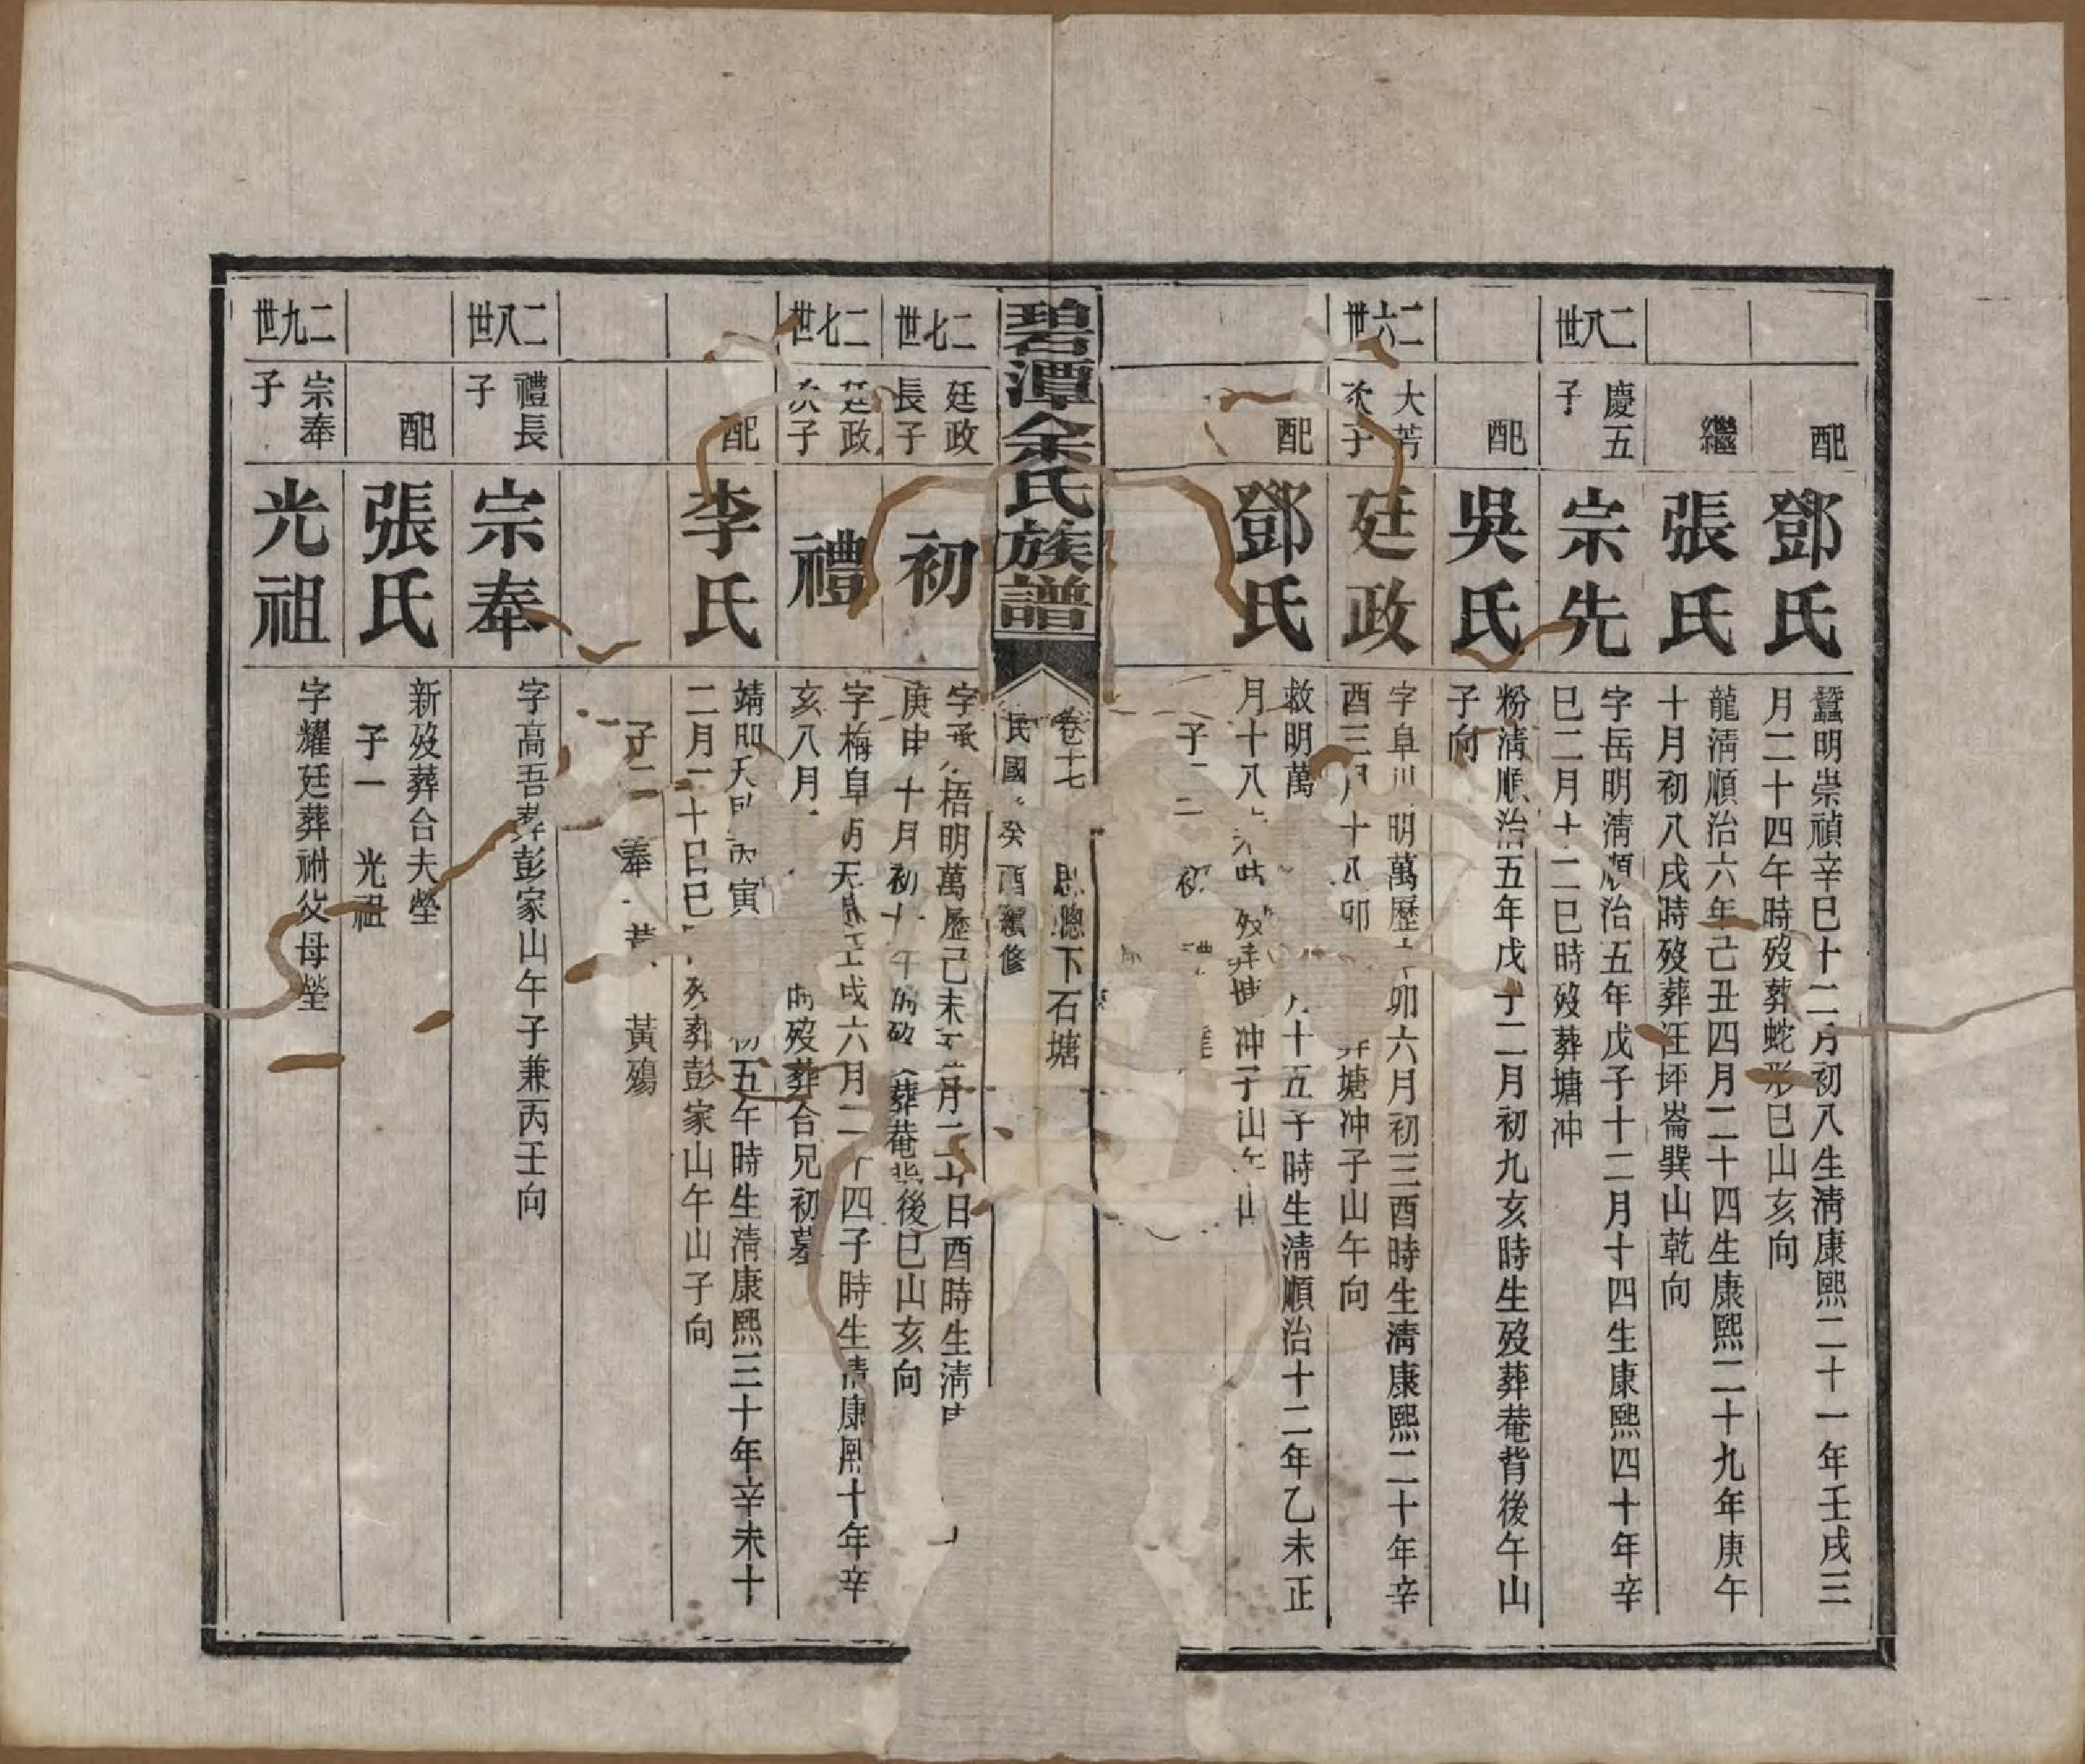 配
鄧氏
蠶明崇禎辛巳十二月初八生清康熙二十一年壬戌三
月二十四午時歿葬蛇形巳山亥向
繼
張氏
龍清順治六年己丑四月二十四生康熙二十九年庚午
十月初八戌時歿葬汪坪崙巽山乾向
二八世
慶五
子
宗先
字岳明清順治五年戊子十二月十四生康熙四十年辛
巳二月十二巳時歿葬塘冲
配
吳氏
粉清順治五年戊子二月初九亥時生歿葬菴背後午山
子向
二六世
大芳
次子
廷政
字阜川明萬歷 卯六月初三酉時生清康熙二十年辛
酉三月十八卯 葬塘冲子山午向
配
鄧氏
救明萬 月十五子時生清順治十二年乙未正
月十八 時歿葬塘冲子山午山
子二 初 禮
碧潭余氏族譜
卷十七 聰下石塘
民國 癸酉續修
二七世
廷政
長子
初
字 梧明萬歷己未 月二十日酉時生清
庚申十月初十午時歿葬菴背後巳山亥向
二七世
廷政
次子
禮
字梅阜明天啟壬戌六月二十四子時生清康熙十年辛
亥八月 時歿葬合兄初墓
配
李氏
靖明天啟丙寅 初五午時生清康熙三十年辛未十
二月二十日巳時歿葬彭家山午山子向
子二 奉 黃 黃殤
二八世
禮長
子
宗奉
字高吾葬彭家山午子兼丙壬向
配
張氏
新歿葬合夫塋
子一 光祖
二九世
宗奉
子
光祖
字耀廷葬祔父母塋